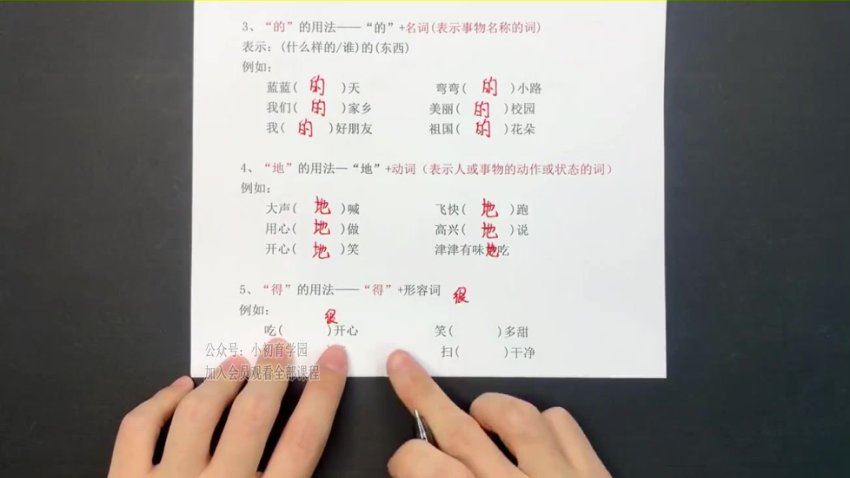 3、“的”的用法——“的”+名词(表示事物名称的词)
表示：(什么样的/谁)的(东西)
例如：
蓝蓝( 的 )天 弯弯( 的 )小路
我们( 的 )家乡 美丽( 的 )校园
我( 的 )好朋友 祖国( 的 )花朵
4、“地”的用法—“地”+动词（表示人或事物的动作或状态的词）
例如：
大声( 地 )喊 飞快( 地 )跑
用心( 地 )做 高兴( 地 )说
开心( 地 )笑 津津有味地吃
5、“得”的用法——“得”+形容词 很
例如：
吃( )很开心 笑( )多甜
扫( )干净
公众号：小初育学园
加入会员观看全部课程